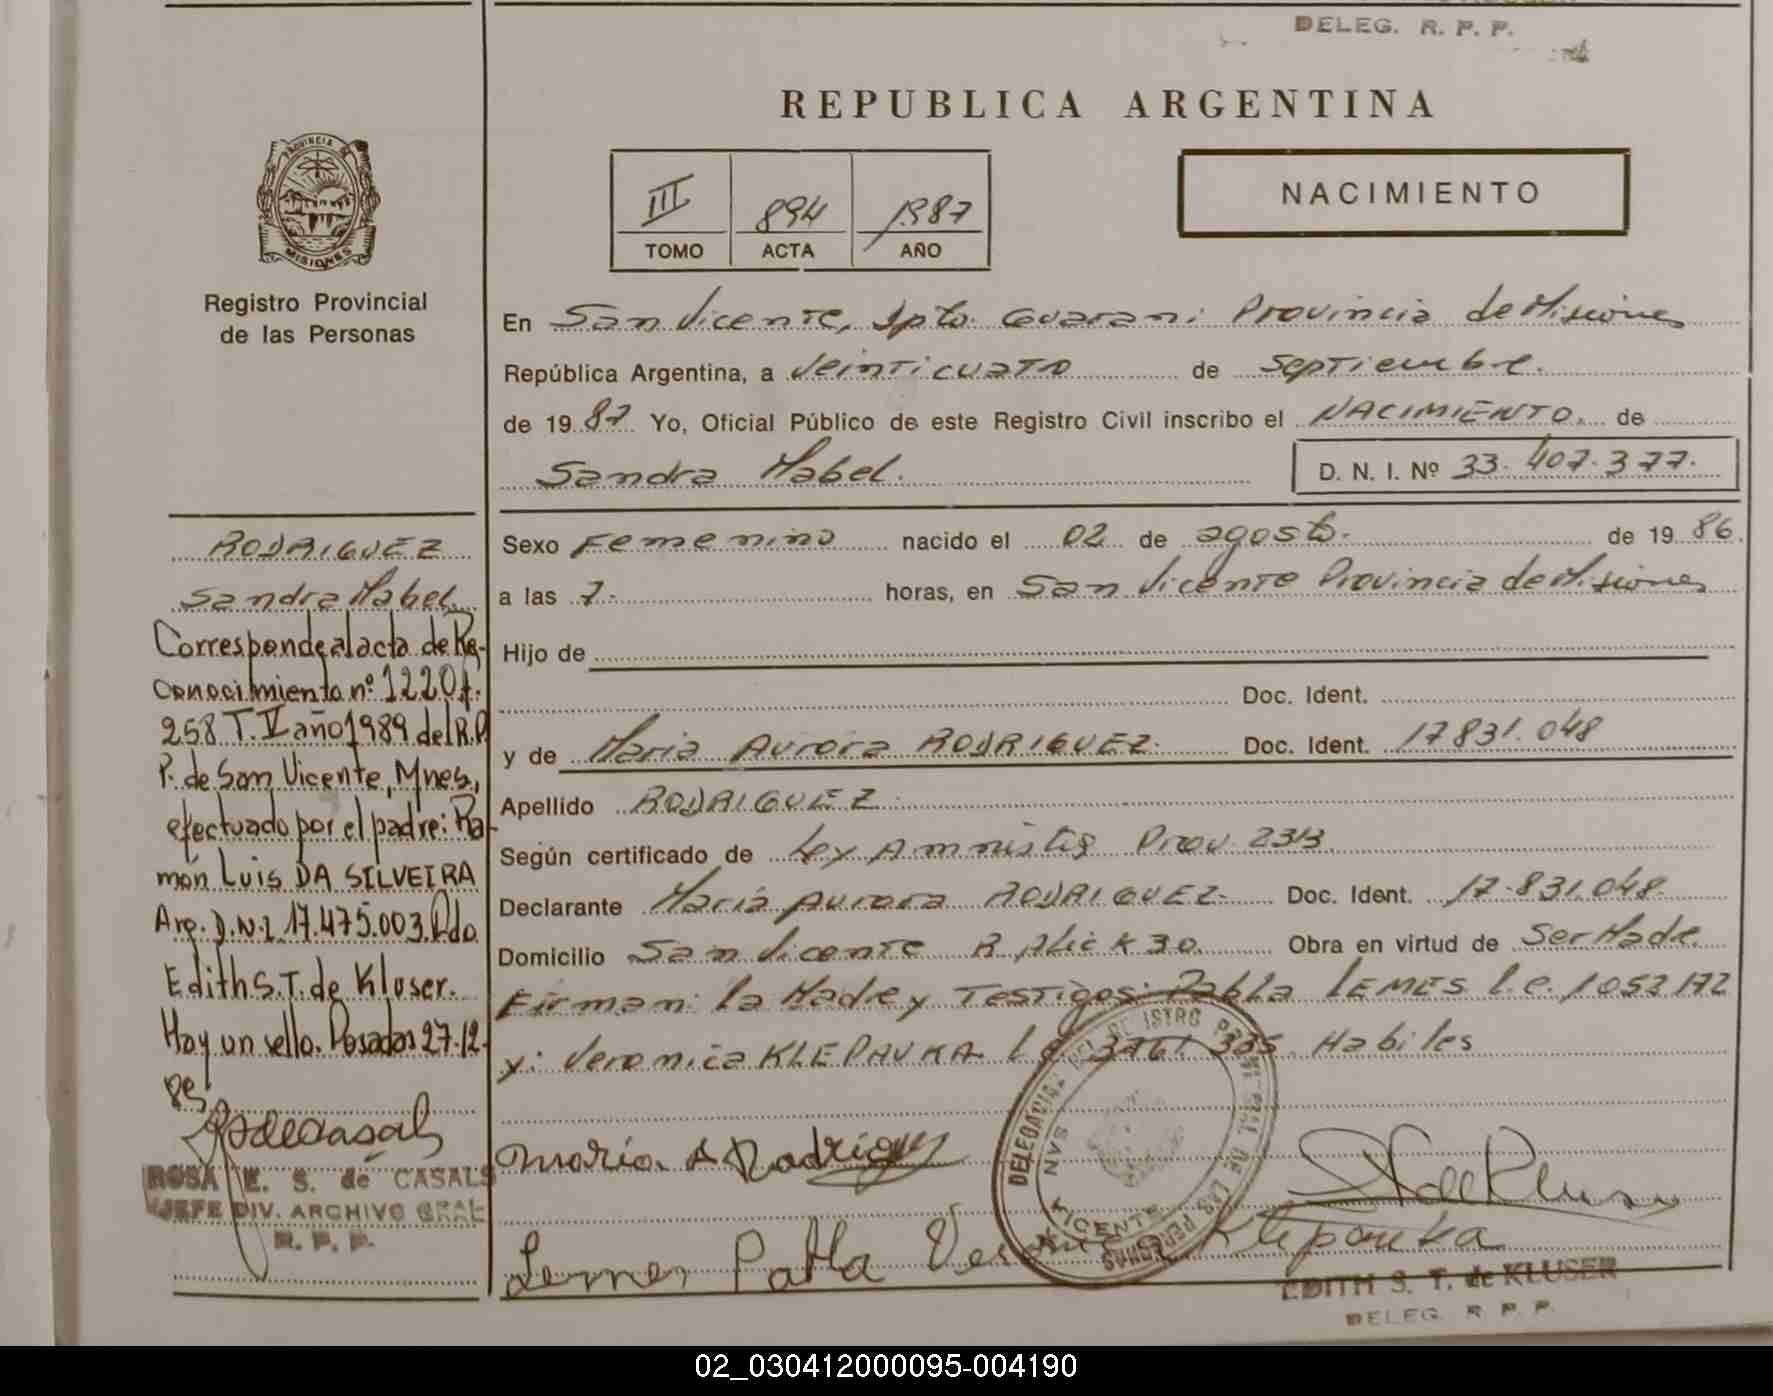 DELEG. R. P. P.
REPUBLICA ARGENTINA
PROVINCIA DE
MISIONES
Registro Provincial
de las Personas
III 894 1987
TOMO ACTA AÑO
NACIMIENTO
En San Vicente, Dpto. Guarani Provincia de Misiones
República Argentina, a Veinticuatro de Septiembre.
de 1987 Yo, Oficial Público de este Registro Civil inscribo el NACIMIENTO. de
Sandra Mabel. D. N. I. Nº 33.407.377.
Sexo Femenino nacido el 02 de agosto. de 1986.
a las 7. horas, en San Vicente Provincia de Misiones
Hijo de
Doc. Ident.
y de Maria Aurora RODRIGUEZ. Doc. Ident. 17831.048
Apellido RODRIGUEZ.
Según certificado de Ley Amnistia Prov. 2313.
Declarante Maria Aurora RODRIGUEZ. Doc. Ident. 17.831.048.
Domicilio San Vicente B. K 30. Obra en virtud de Ser Madre
Firman: la Madre y Testigos: Pabla LEMES l.c. 1052172
y: Veronica KLEPAUKA 335. Habiles
RODRIGUEZ
Sandra Mabel.
Corresponde al acta de Re-
conocimiento nº 1220 f.
258 T. V año 1989 del R.P.
P. de San Vicente, Mnes,
efectuado por el padre: Ra-
món Luis DA SILVEIRA
Arg. D.N.I. 17.475.003. Fdo.
Edith S.T. de Kluser.
Hay un sello. Posadas 27.12.
89
ROSA E. S. de CASALS
JEFE DIV. ARCHIVO GRAL
R. P. P.
Maria A Rodriguez
Lemes Pabla Veronica Klepauka
DELEGACION DEL REGISTRO PROVINCIAL DE LAS PERSONAS
SAN VICENTE
EDITH S. T. de KLUSER
DELEG. R. P. P.
02_030412000095-004190